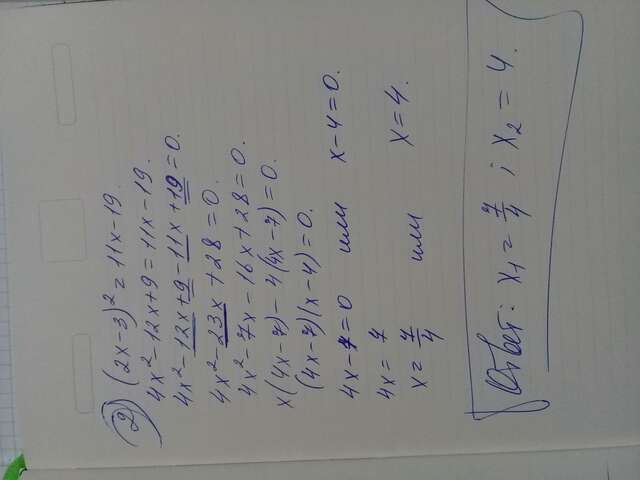 2) (2x-3)² = 11x-19.
4x²-12x+9 = 11x-19.
4x²-12x+9-11x+19=0.
4x²-23x+28=0.
4x²-7x-16x+28=0.
x(4x-7)-4(4x-7)=0.
(4x-7)(x-4)=0.
4x-7=0 или x-4=0.
4x=7
x=7/4 или x=4.
Ответ: x₁=7/4; x₂=4.